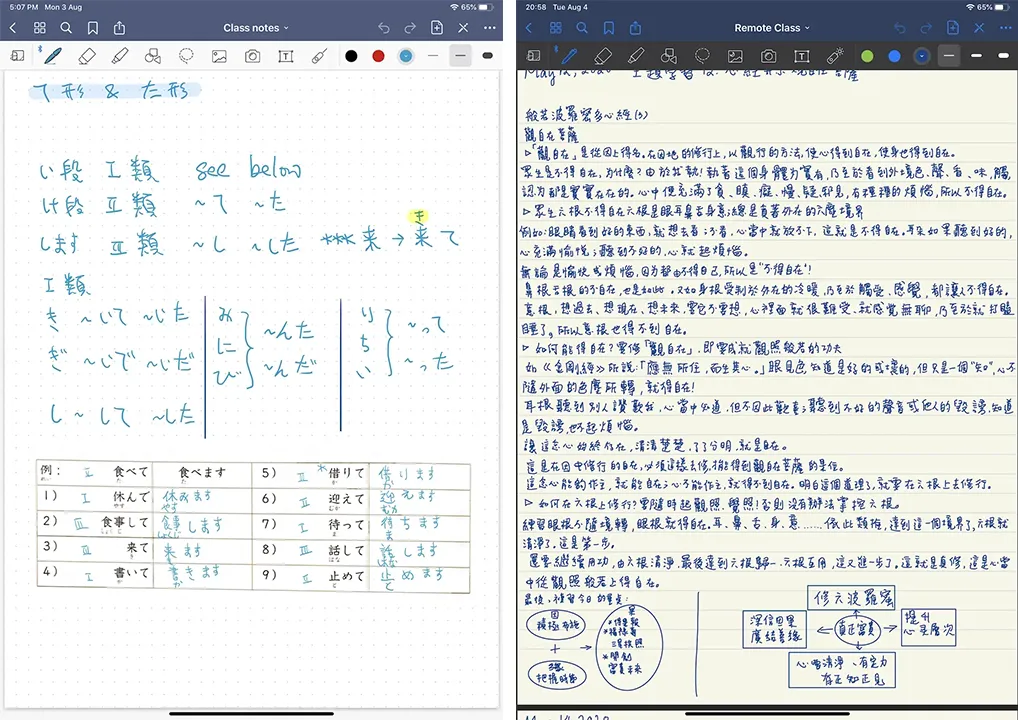 5:07 PM Mon 3 Aug
65%
Class notes
て形 & た形
い段 I類 see below
け段 II類 ~て ~た
します III類 ~し ~した ***来 → 来て
き
I類
き ~いて ~いた
ぎ ~いで ~いだ
し ~して ~した
み
に
び
~んた
~んだ
り
ち
い
~って
~った
例: II 食べて 食べます
1) I 休んで 休みます
やす
2) III 食事して 食事します
しょくじ
3) III 来て 来ます
4) I 書いて 書きます
か
5) II *借りて 借ります
か
6) II 迎えて 迎えます
むか
7) I 待って 待ちます
ま
8) III 話して 話します
はな
9) II 止めて 止めます
と
20:58 Tue Aug 4
65%
Remote Class
般若波羅蜜多心經(3)
觀自在菩薩
▷「觀自在」是從因上得名。在因地的修行上,以觀行的方法,使心得到自在,使身也得到自在。
眾生是不得自在,為什麼?由於我執!執著這個身體為實有,乃至於看到外境色、聲、香、味、觸,
認為都是實實在在的。心中便充滿了貪、瞋、癡、慢、疑、邪見,有種種的煩惱,所以不得自在。
▷眾生六根不得自在六根是眼耳鼻舌身意,總是負著外在的六塵境界
例如:眼睛看到好的東西,就想去看;不看,心當中就放不下,這就是不得自在。耳朵如果聽到好的,
心充滿愉悅;聽到不好的,心就起煩惱。
無論是愉快或煩惱,因為都由不得自己,所以是"不得自在"!
鼻根舌根的不自在,也是如此。又如身根受制於外在的冷暖,乃至於觸受、感覺,都讓人不得自在。
意根,想過去、想現在、想未來,要它不要想,心裡面就很難受、就感覺無聊,乃至於就打瞌
睡了。所以意根也得不到自在。
▷如何能得自在?要修「觀自在」,即要成就觀照般若的功夫
如《金剛經》所說:「應無所住,而生其心。」眼見色,知道是好的或壞的,但只是一個"知",心不
隨外面的色塵所轉,就得自在!
耳根聽到別人讚歎我,心當中知道,但不因此歡喜;聽到不好的聲音或他人的毀謗,知道
是毀謗,也不起煩惱。
讓這念心始終存在,清清楚楚、了了分明,就是自在。
這是在因中修行的自在,必須這樣去修,才能得到觀自在菩薩的果位。
這念心能夠作主,就能自在;心不能作主,就得不到自在。明白這個道理了,就要在六根上去修行。
▷如何在六根上修行?要隨時起觀照、覺照!否則沒有辦法掌控六根。
練習眼根不隨境轉,眼根就得自在。耳、鼻、舌、身、意……依此類推,達到這一個境界了,六根就
清淨了。這是第一步。
還要繼續用功,由六根清淨,最後達到六根歸一、六根互用,這又進一步了。這就是真修,這是心當
中從觀照般若上得自在。
最後,複習今日的重點:
因
積極布施
+
緣
把握時節
→
果
修六波羅蜜
深信因果
廣結善緣
真正富貴
提升
心靈層次
心要清淨、有定力
存正知正見